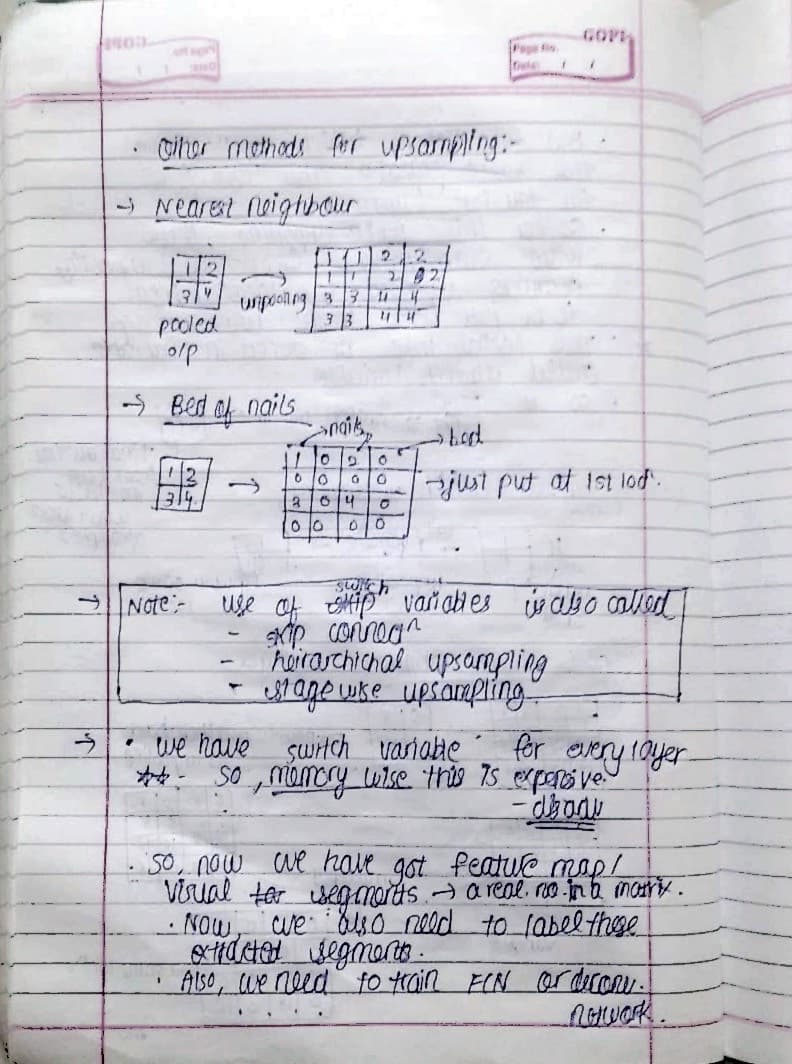 GOPI
Page No.
Date: / /
• Other methods for upsampling:-
→ Nearest neighbour
1 2 → 1 1 2 2
3 4 unpooling 1 1 2 2
3 3 4 4
3 3 4 4
pooled
o/p
→ Bed of nails
→ nails → bed
1 2 → 1 0 2 0
3 4 0 0 0 0 → just put at 1st locⁿ.
3 0 4 0
0 0 0 0
→ Note:- use of switch variables is also called
- skip connecⁿ
- heirarchichal upsampling
- stage wise upsampling
→ • we have switch variable for every layer
** - so, memory wise this is expensive.
- disadv
• So, now we have got feature map/
visual segments → a real no. in a matrix.
• Now, we also need to label these
extracted segments.
• Also, we need to train FCN or deconv.
network.